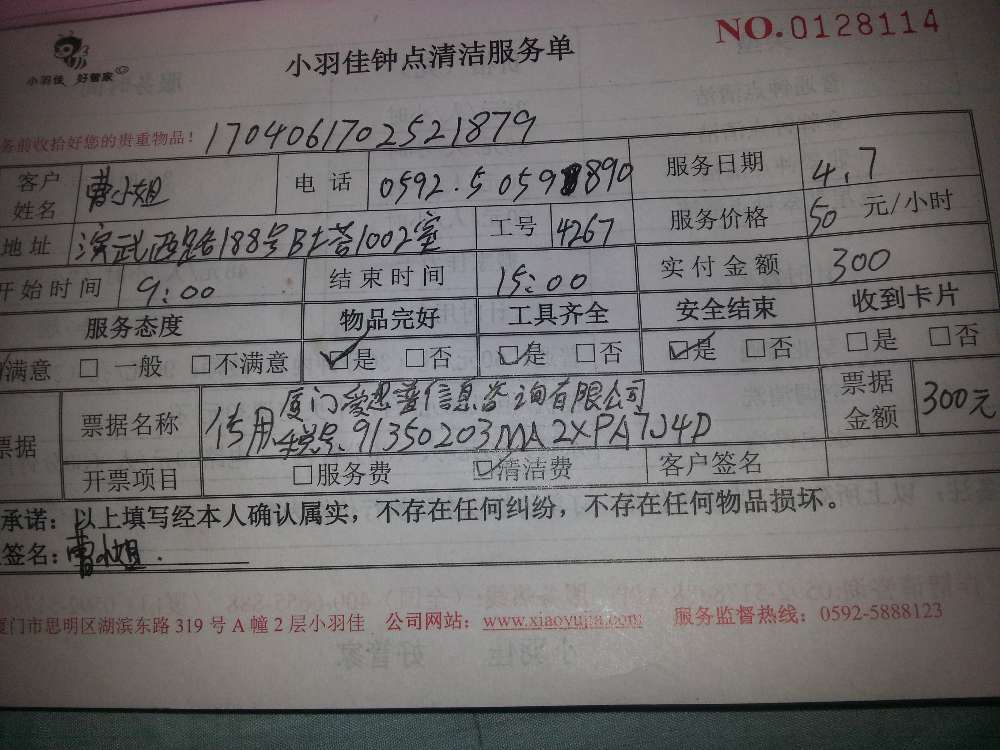 小羽佳 好管家
小羽佳钟点清洁服务单
NO.0128114
务前收拾好您的贵重物品! 1704061702521879
客户姓名 曹小姐 电话 0592.5059 890 服务日期 4.7
地址 演武西路188号B 1002室 工号 4267 服务价格 50 元/小时
开始时间 9:00 结束时间 15:00 实付金额 300
服务态度 物品完好 工具齐全 安全结束 收到卡片
满意 □ 一般 □不满意 ☑是 □否 ☑是 □否 ☑是 □否 □是 □否
票据 票据名称 厦门爱思普信息咨询有限公司 票据金额 300元
税号.91350203MA2XPA7J4D
开票项目 □服务费 ☑清洁费 客户签名
承诺:以上填写经本人确认属实,不存在任何纠纷,不存在任何物品损坏。
签名:曹小姐.
厦门市思明区湖滨东路 319 号 A 幢 2 层小羽佳 公司网站:www.xiaoyujia.com 服务监督热线:0592-5888123